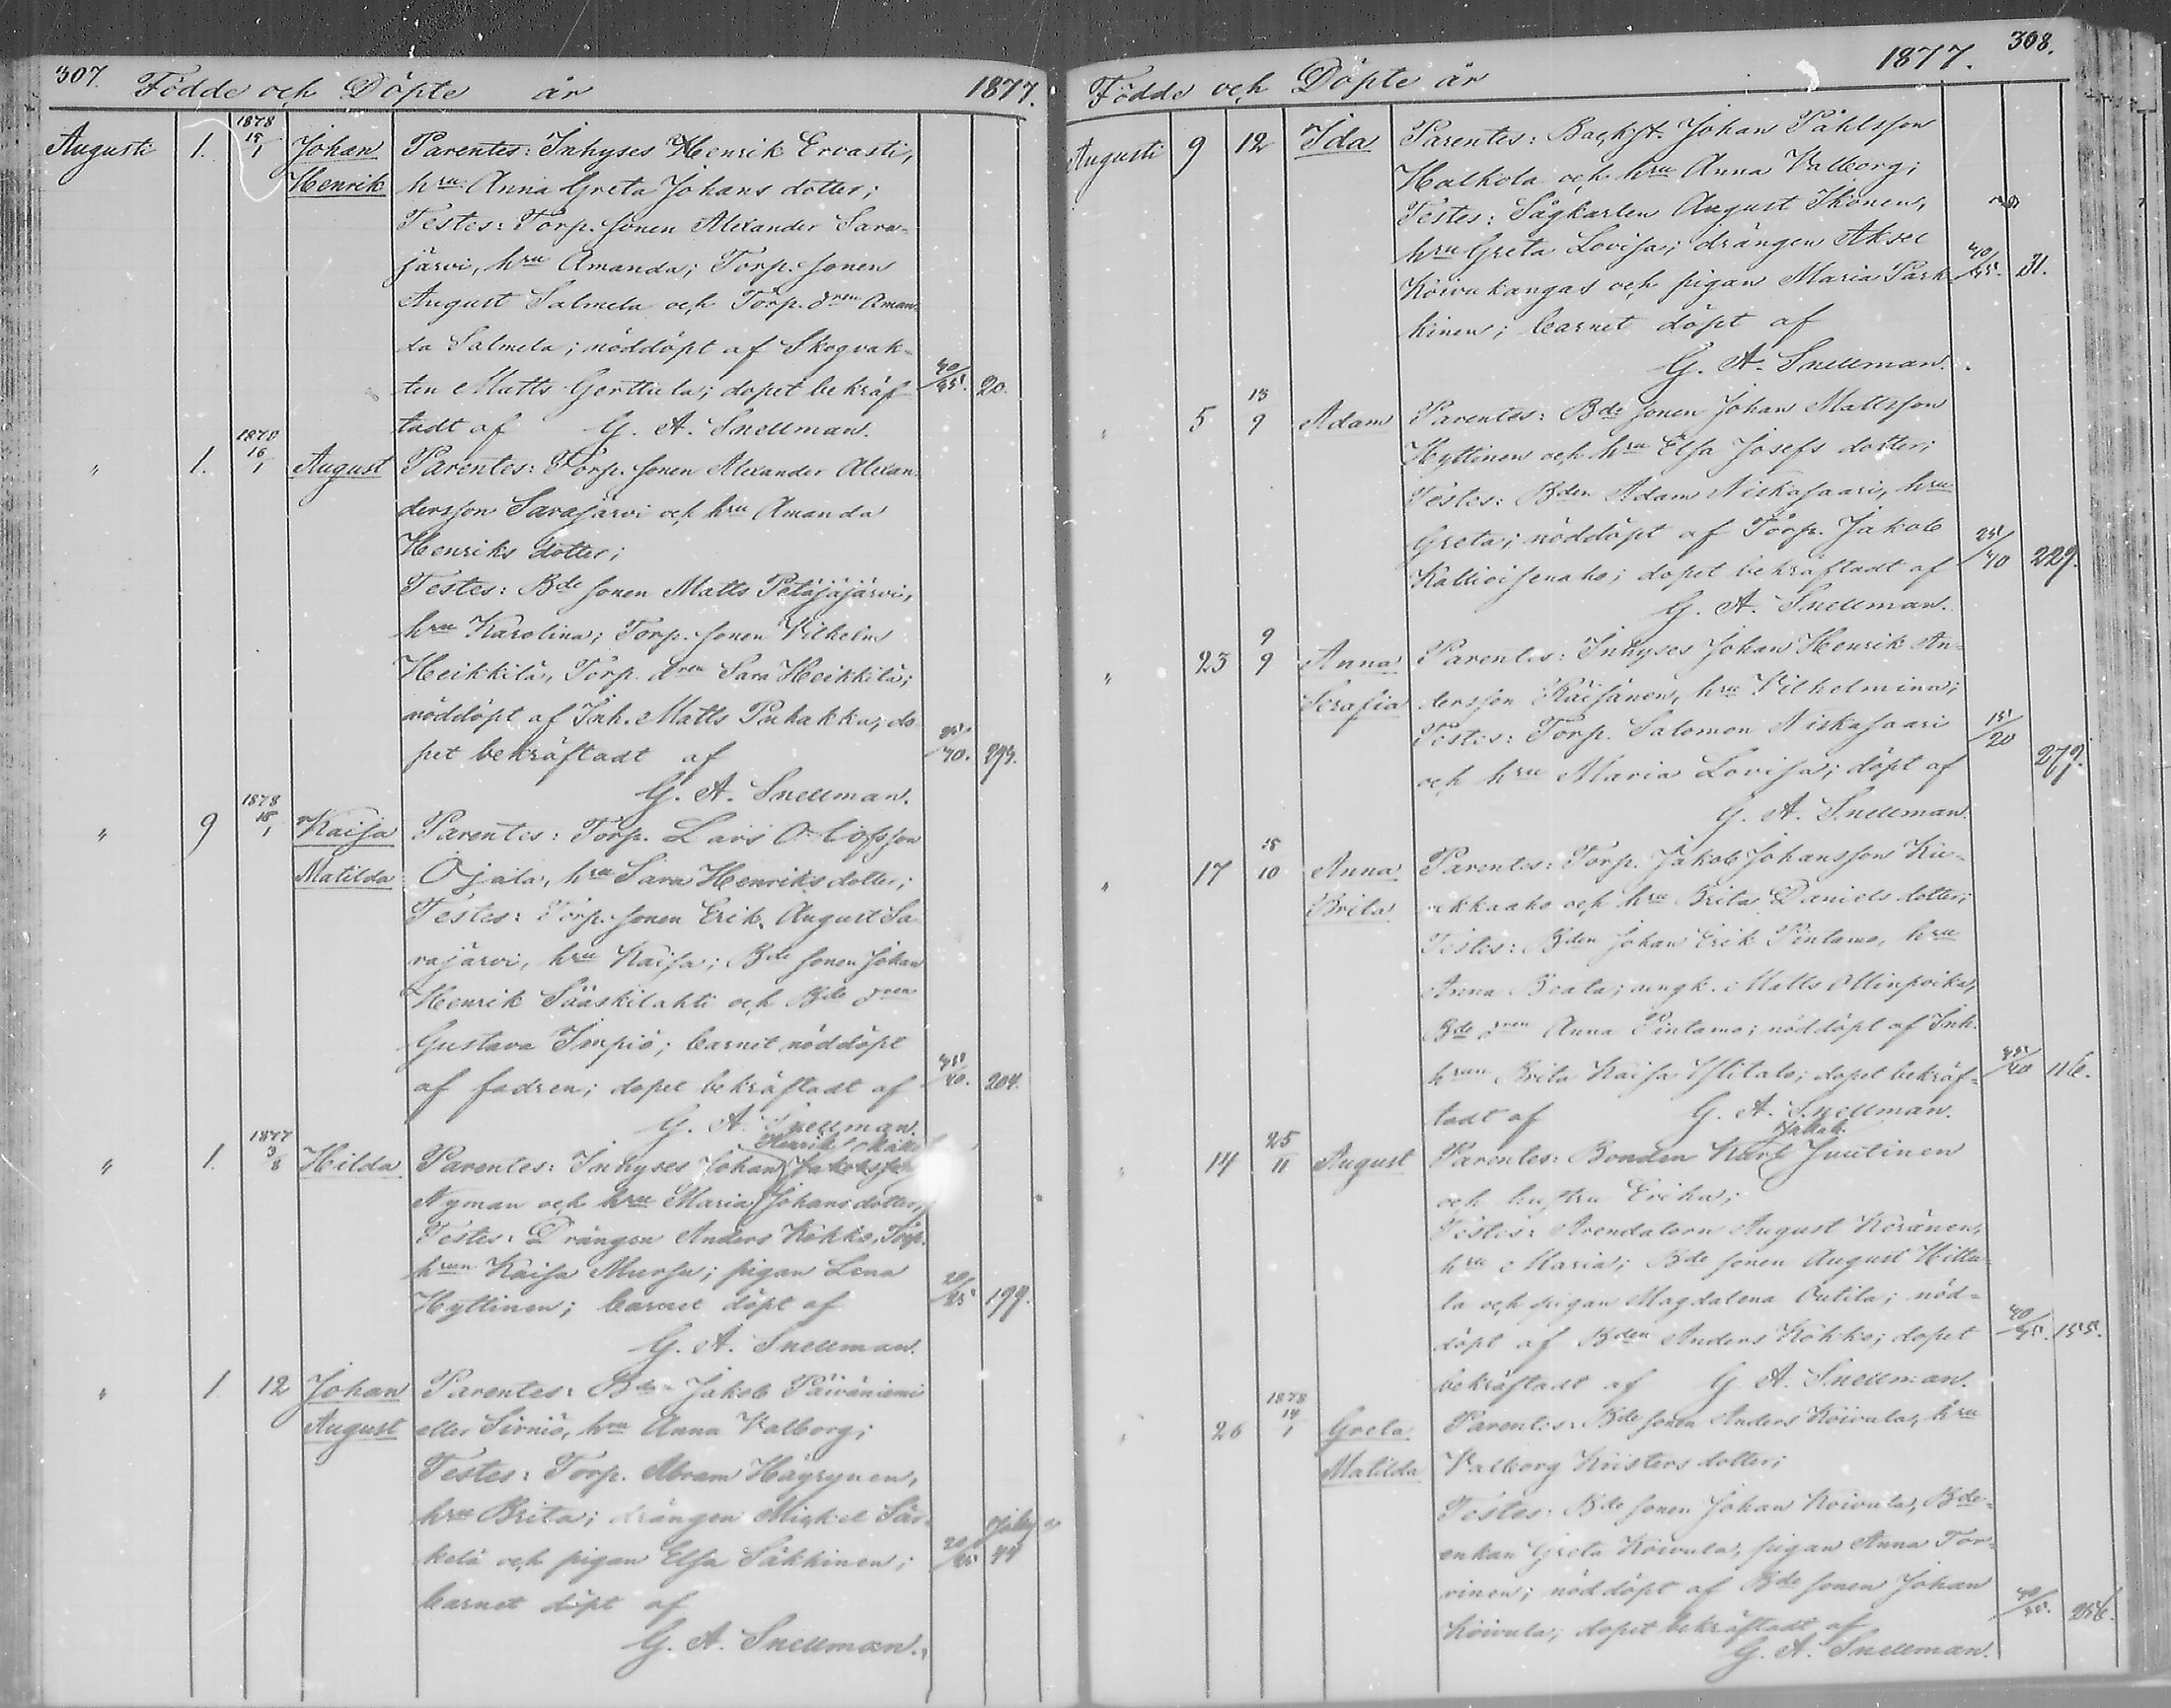 307. Födde och Döpte år 1877.
1878
Augusti 1. 15/1 Johan Parentes: Inhyses Henrik Ervasti,
Henrik hru Anna Greta Johans dotter;
Testes: Torp. sonen Alexander Sara-
järvi, hru Amanda; Torp. sonen
August Salmela och Torp. dren Aman-
da Salmela; nöddöpt af Skogvak-
ten Matts Gerttula; dopet bekräf- 40/45. 20.
tadt af G. A. Snellman.
1878
" 1. 16/1 August Parentes: Torp. sonen Alexander Alexan-
dersson Sarajärvi och hru Amanda
Henriks dotter;
Testes: Bde sonen Matts Petäjäjärvi,
hru Karolina; Torp. sonen Vilhelm
Heikkilä, Torp. dren Sara Heikkilä;
nöddöpt af Inh. Matts Puhakka; do-
pet bekräftadt af 35/40. 294.
G. A. Snellman.
1878
" 9 15/1 Kaisa Parentes: Torp. Lars Olofsson
Matilda Ojala, hru Sara Henriks dotter;
Testes: Torp. sonen Erik August Sa-
rajärvi, hru Kaisa; Bde sonen Johan
Henrik Sääskilahti och Bde dren
Gustava Impiö; barnet nöddöpt
af fadren; dopet bekräftadt af 35/40. 204.
G. A. Snellman.
1877 Henrik
" 1. 3/8 Hilda Parentes: Inhyses Johan Jakobsson
Nyman och hru Maria Johans dotter;
Testes: Drängen Anders Kokko, Torp.
hrun Kaisa Mursu; pigan Lena
Hyttinen; barnet döpt af 20/25 199.
G. A. Snellman.
" 1 12 Johan Parentes: Bden Jakob Päiväniemi
August eller Sirniö, hru Anna Valborg;
Testes: Torp. Abram Häyrynen,
hru Brita; drängen Mickel Sär-
kelä och pigan Elsa Säkkinen; 20/25 44
barnet döpt af
G. A. Snellman.
Födde och Döpte år 1877. 308.
Augusti 9 12 Ida Parentes: Backst. Johan Påhlsson
Halkola och hru Anna Valborg;
Testes: Sågkarlen August Ikonen,
hru Greta Lovisa; drängen Aksel
Koivukangas och pigan Maria Park- 40/45. 31.
kinen; barnet döpt af
G. A. Snellman.
" 5 13/9 Adam Parentes: Bde sonen Johan Mattsson
Hyttinen och hru Elsa Josefs dotter;
Testes: Bden Adam Niskasaari, hru
Greta; nöddöpt af Torp. Jakob
Kallioisenaho; dopet bekräftadt af 35/40 229.
G. A. Snellman.
" 23 9/9 Anna Parentes: Inhyses Johan Henrik An-
Serafia dersson Räisänen, hru Vilhelmina;
Testes: Torp. Salomon Niskasaari 15/20
och hru Maria Lovisa; döpt af 279.
G. A. Snellman.
" 17 15/10 Anna Parentes: Torp. Jakob Johansson Ku-
Brita okkaaho och hru Brita Daniels dotter;
Testes: Bden Johan Erik Pintamo, hru
Anna Beata; ungk. Matts Ollinpoika,
Bde dren Anna Pintamo; nöddöpt af Inh.
hrun Brita Kaisa Ylitalo; dopet bekräf- 35/40 116.
tadt af G. A. Snellman.
Jakob
" 14 25/11 August Parentes: Bonden Karl Juutinen
och hustru Erika;
Testes: Arendatorn August Keränen,
hru Maria; Bde sonen August Hiltu-
la och pigan Magdalena Outila; nöd-
döpt af Bden Anders Kokko; dopet 40/45. 155.
bekräftadt af G. A. Snellman.
1878
" 26 14/1 Greta Parentes: Bde sonen Anders Koivula, hru
Matilda Valborg Kristers dotter;
Testes: Bde sonen Johan Koivula, Bde-
enkan Greta Koivula, pigan Anna Tor-
vinen; nöddöpt af Bde sonen Johan
Koivula; dopet bekräftadt af 40/45. 256.
G. A. Snellman.